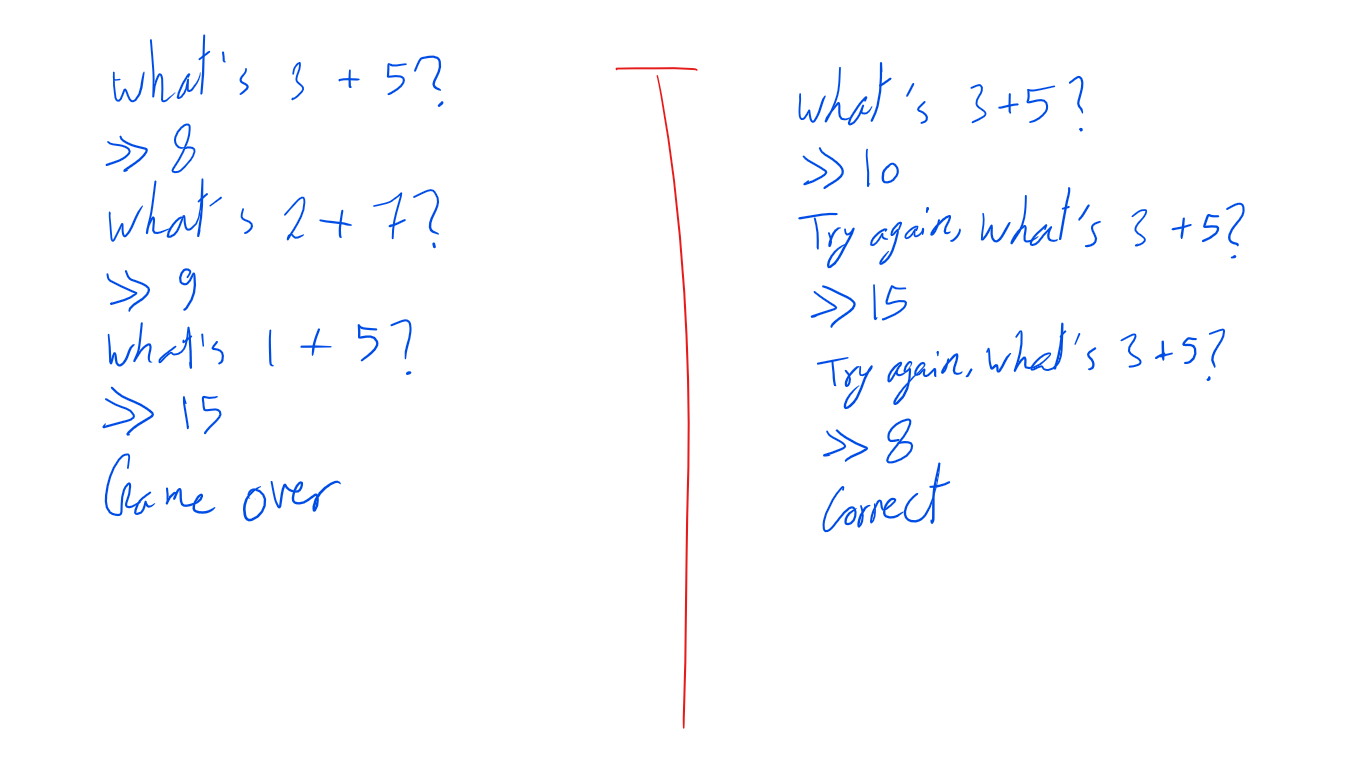 what's 3 + 5?
>> 8
what's 2 + 7?
>> 9
what's 1 + 5?
>> 15
Game over
what's 3+5?
>> 10
Try again, what's 3 +5?
>> 15
Try again, what's 3+5?
>> 8
Correct